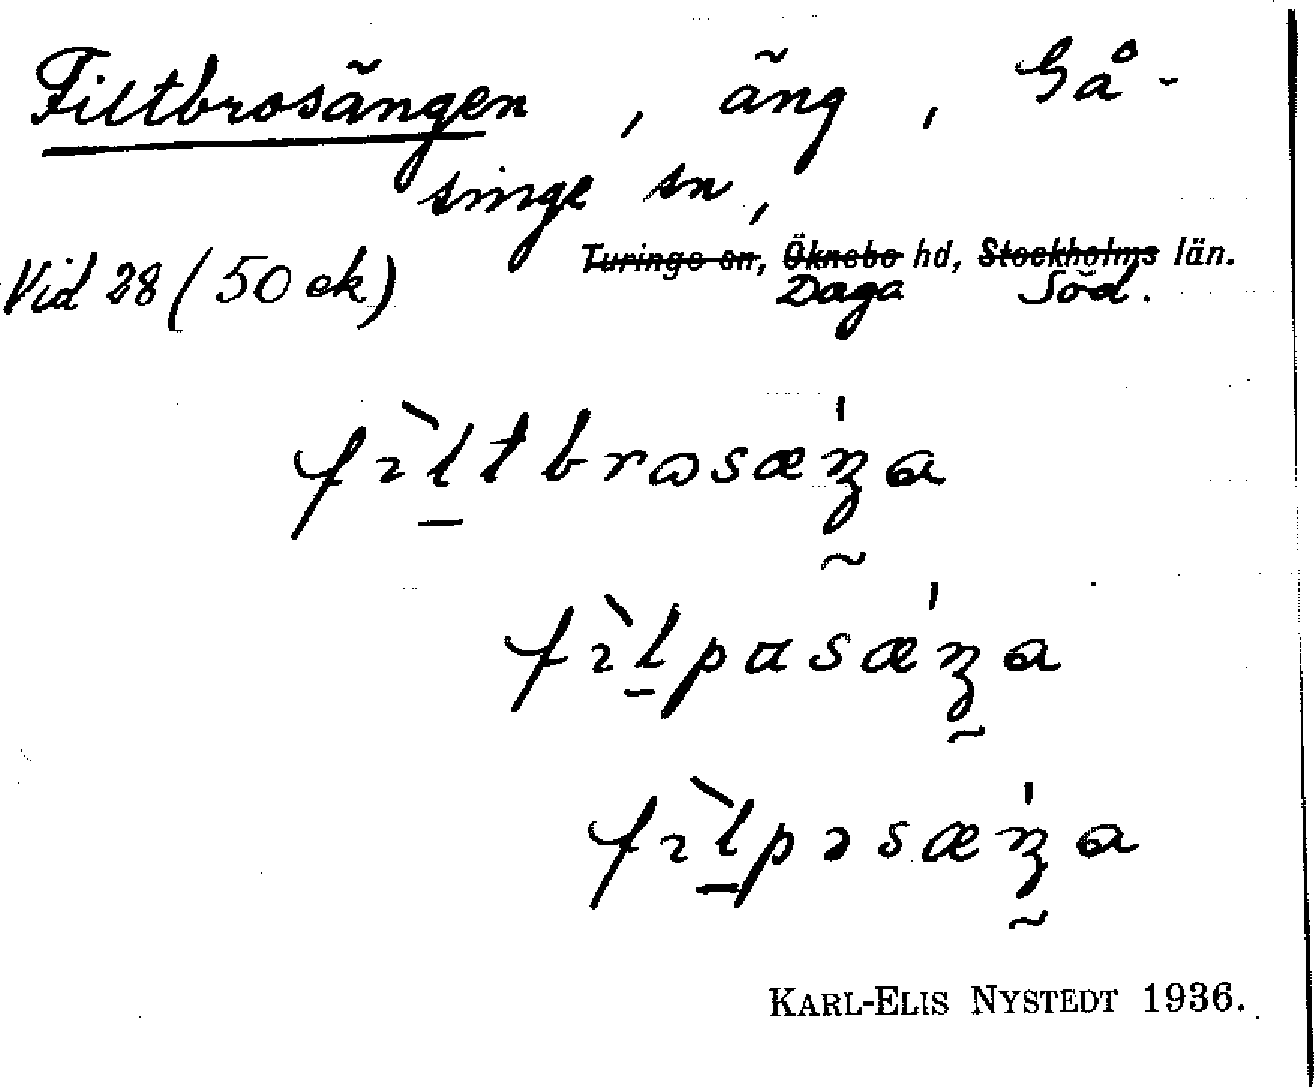 Filtbrosängen , äng , Gå-
singe sn,
Vid 28 (50 ek) Turinge sn, Öknebo hd, Stockholms län.
Daga Söd.
fı̀ltbrosæ̨ŋa
fı̀lpasæŋa
fı̀lpəsæŋa
KARL-ELIS NYSTEDT 1936.